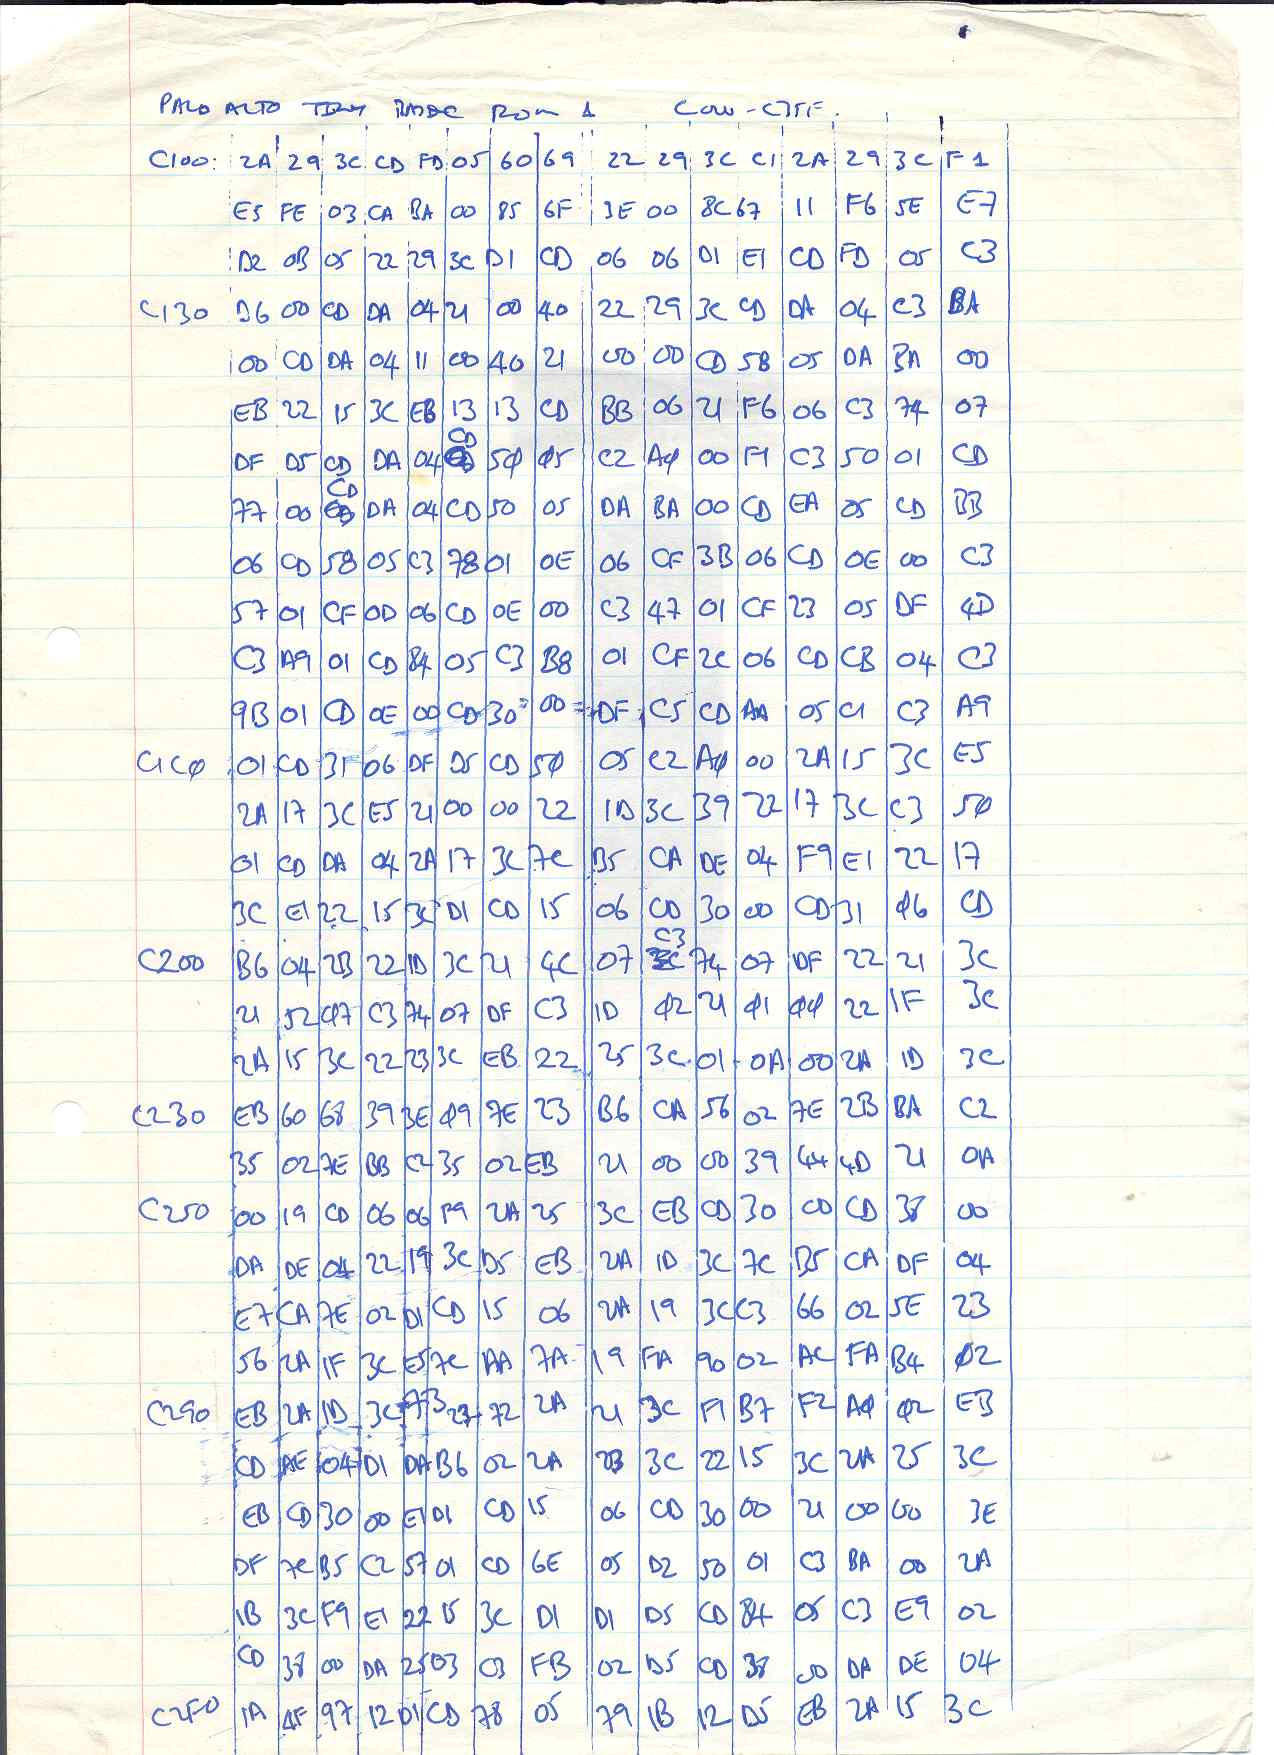 PALO ALTO TINY BASIC ROM 1 C000-C7FF.
C100: 2A 29 3C CD FD 05 60 69 22 29 3C C1 2A 29 3C F1
E5 FE 03 CA BA 00 85 6F 3E 00 8C 67 11 F6 5E E7
D2 0B 05 22 29 3C D1 CD 06 06 D1 E1 CD FD 05 C3
C130 D6 00 CD DA 04 21 00 40 22 29 3C CD DA 04 C3 BA
00 CD DA 04 11 00 40 21 00 00 CD 58 05 DA BA 00
EB 22 15 3C EB 13 13 CD BB 06 21 F6 06 C3 74 07
DF D5 CD DA 04 CD 5φ φ5 C2 Aφ 00 F1 C3 50 01 CD
77 00 CD DA 04 CD 50 05 DA BA 00 CD EA 05 CD BB
06 CD 58 05 C3 78 01 0E 06 CF 3B 06 CD 0E 00 C3
57 01 CF 0D 06 CD 0E 00 C3 47 01 CF 23 05 DF 4D
C3 A9 01 CD 84 05 C3 B8 01 CF 2C 06 CD CB 04 C3
9B 01 CD 0E 00 CD 30 00 DF C5 CD AA 05 C1 C3 A9
C1Cφ 01 CD 31 06 DF D5 CD 5φ 05 C2 Aφ 00 2A 15 3C E5
2A 17 3C E5 21 00 00 22 1D 3C 39 22 17 3C C3 5φ
01 CD DA 04 2A 17 3C 7C B5 CA DE 04 F9 E1 22 17
3C E1 22 15 3C D1 CD 15 06 CD 30 00 CD 31 φ6 CD
C200 B6 04 2B 22 1D 3C 21 4C 07 C3 74 07 DF 22 21 3C
21 52 φ7 C3 74 07 DF C3 1D φ2 21 φ1 φφ 22 1F 3C
2A 15 3C 22 23 3C EB 22 25 3C 01 0A 00 2A 1D 3C
C230 EB 60 68 39 3E φ9 7E 23 B6 CA 56 02 7E 2B BA C2
35 02 7E BB C2 35 02 EB 21 00 00 39 44 4D 21 0A
C250 00 19 CD 06 06 F9 2A 25 3C EB CD 30 00 CD 38 00
DA DE 04 22 19 3C D5 EB 2A 1D 3C 7C B5 CA DF 04
E7 CA 7E 02 D1 CD 15 06 2A 19 3C C3 66 02 5E 23
56 2A 1F 3C E5 7C AA 7A 19 FA 90 02 AC FA B4 φ2
C290 EB 2A 1D 3C 73 23 72 2A 21 3C F1 B7 F2 Aφ φ2 EB
CD AE 04 D1 DA B6 02 2A 23 3C 22 15 3C 2A 25 3C
EB CD 30 00 E1 D1 CD 15 06 CD 30 00 21 00 00 3E
DF 7C B5 C2 57 01 CD 6E 05 D2 50 01 C3 BA 00 2A
1B 3C F9 E1 22 15 3C D1 D1 D5 CD 84 05 C3 E9 02
CD 38 00 DA 25 03 C3 FB 02 D5 CD 38 00 DA DE 04
C2F0 1A 4F 97 12 D1 CD 78 05 79 1B 12 D5 EB 2A 15 3C